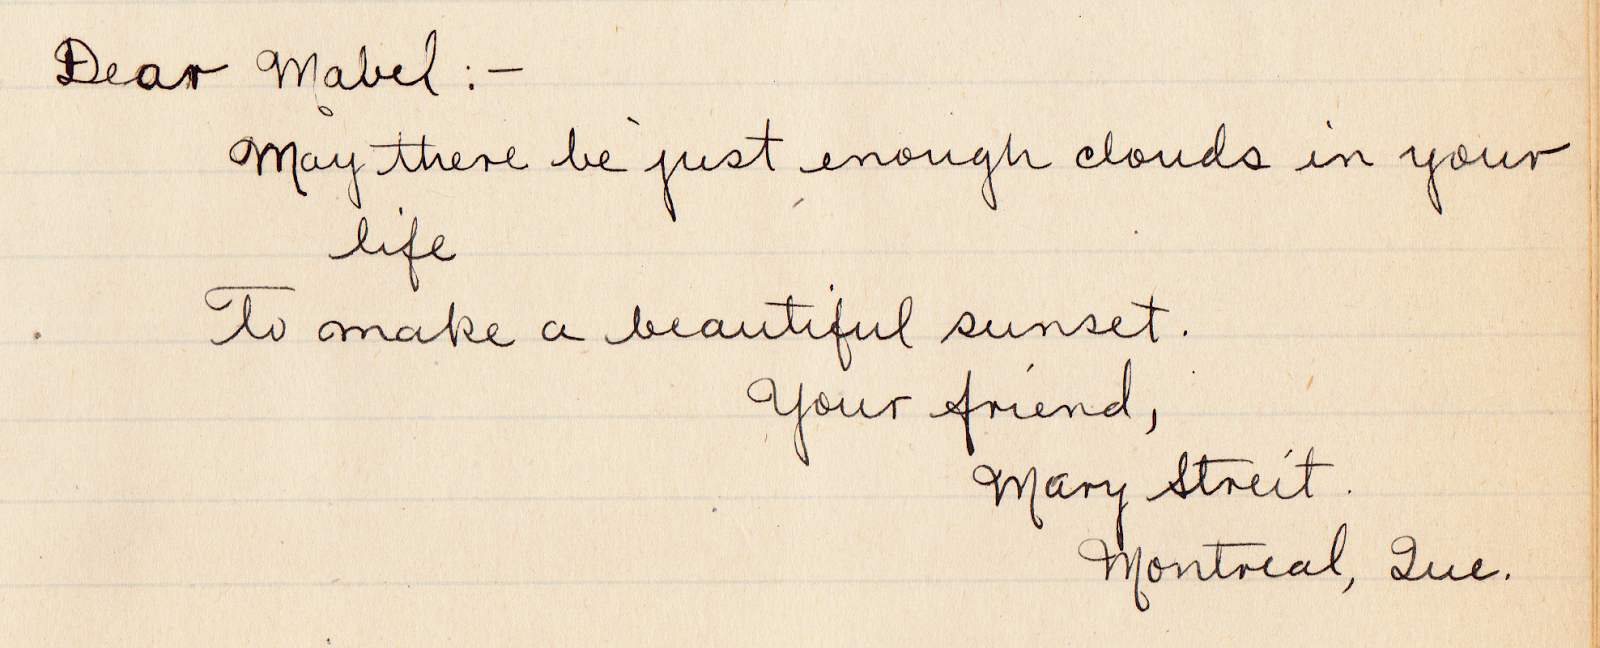 Dear Mabel :-
May there be just enough clouds in your
life
To make a beautiful sunset.
Your friend,
Mary Streit.
Montreal, Que.